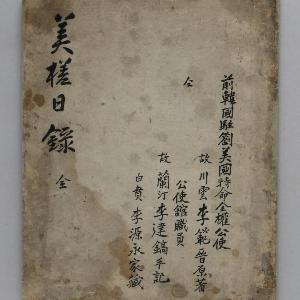 前韓國駐箚美國特命全權公使
故 川雲 李範晉 原著
仝 公使館職員
故 蘭汀 李建鎬 手記
白賁 李源永 家藏
美槎日錄 全